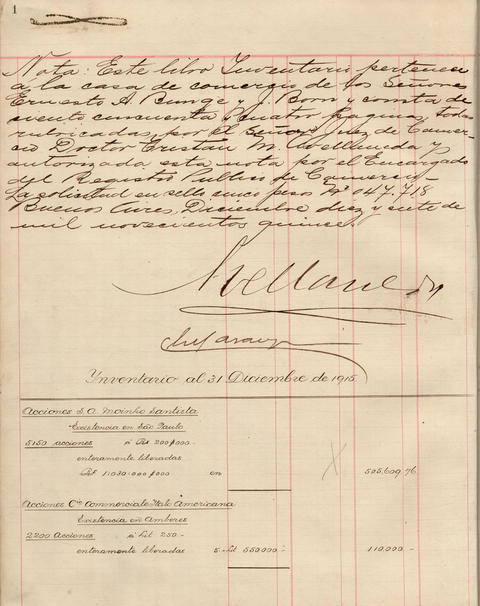 1
Nota: Este libro Inventario pertenece
a la casa de comercio de los Señores
Ernesto A. Bunge y J. Born y consta de
ciento cincuenta y cuatro paginas, todas
rubricadas, por el Señor Juez de Comer-
cio Doctor Cristián M. Avellaneda y
autorizada esta nota por el Encargado
del Registro Publico de Comercio.
La solicitud en sello cinco pesos Nº 047,718
Buenos Aires, Diciembre diez y siete de
mil novecientos quince.
Avellaneda
Inventario al 31 Diciembre de 1915
Acciones S.A. Moinho Santista
Existencia en São Paulo
5150 acciones á Rs 200$000.-
enteramente liberadas
Rs 1.030.000$000 en
X 505,609.76
Acciones Cie Commerciale Italo Americana
Existencia en Amberes
2200 Acciones á Lit 250.-
enteramente liberadas 5.- Lit 550,000.- 110,000.-